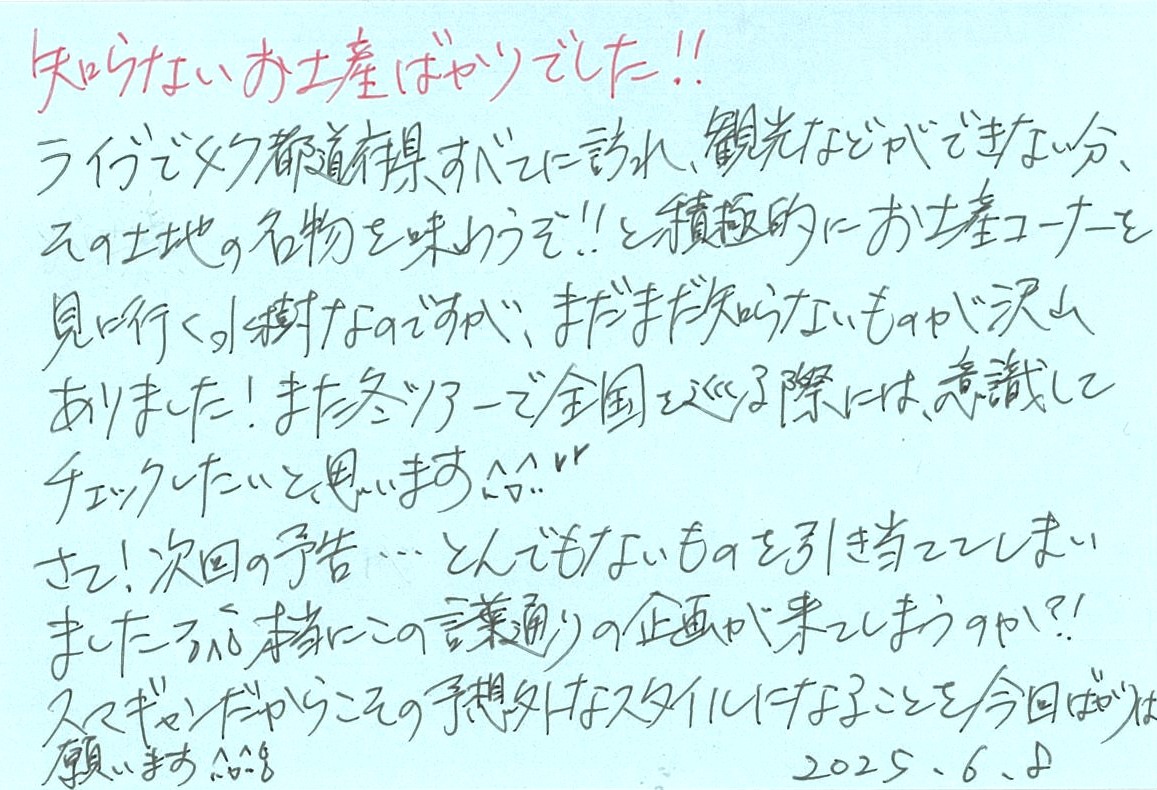 知らないお土産ばかりでした!!
ライブで47都道府県すべてに訪れ、観光などができない分、
その土地の名物を味わうぞ!!と積極的にお土産コーナーを
見に行く水樹なのですが、まだまだ知らないものが沢山
ありました!また冬ツアーで全国を巡る際には、意識して
チェックしたいと思います^^
さて!次回の予告…とんでもないものを引き当ててしまい
ました 本当にこの言葉通りの企画が来てしまうのか?!
スマギャンだからこその予想外なスタイルになることを今回ばかりは
願います^^;
2025.6.8